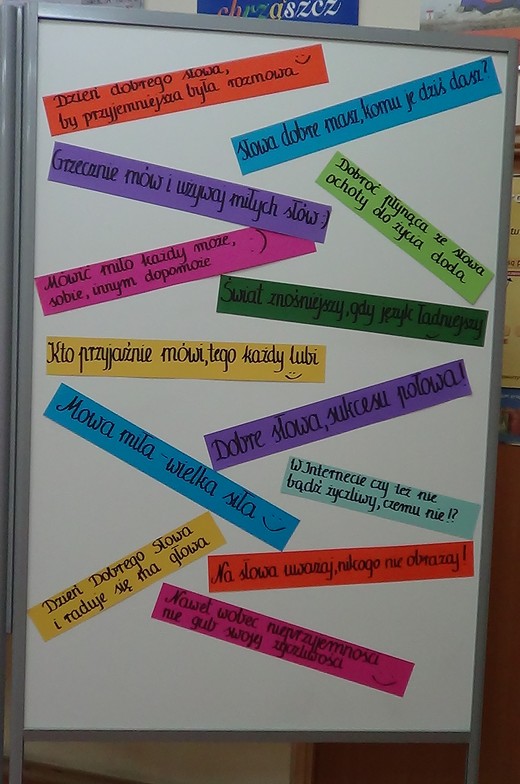 chrząszcz
Dzień dobrego słowa,
by przyjemniejsza była rozmowa
Słowa dobre masz, komu je dziś dasz?
Grzecznie mów i używaj miłych słów :)
Dobroć płynąca ze słowa
ochoty do życia doda
Mówić miło każdy może,
sobie, innym dopomoże
Świat znośniejszy, gdy język ładniejszy
Kto przyjaźnie mówi, tego każdy lubi
Dobre słowa, sukcesu połowa!
Mowa miła - wielka siła
W Internecie czy też nie
bądź życzliwy, czemu nie!?
Dzień Dobrego Słowa
i raduje się ma głowa
Na słowa uważaj, nikogo nie obrażaj!
Nawet wobec nieprzyjemności
nie gub swojej życzliwości